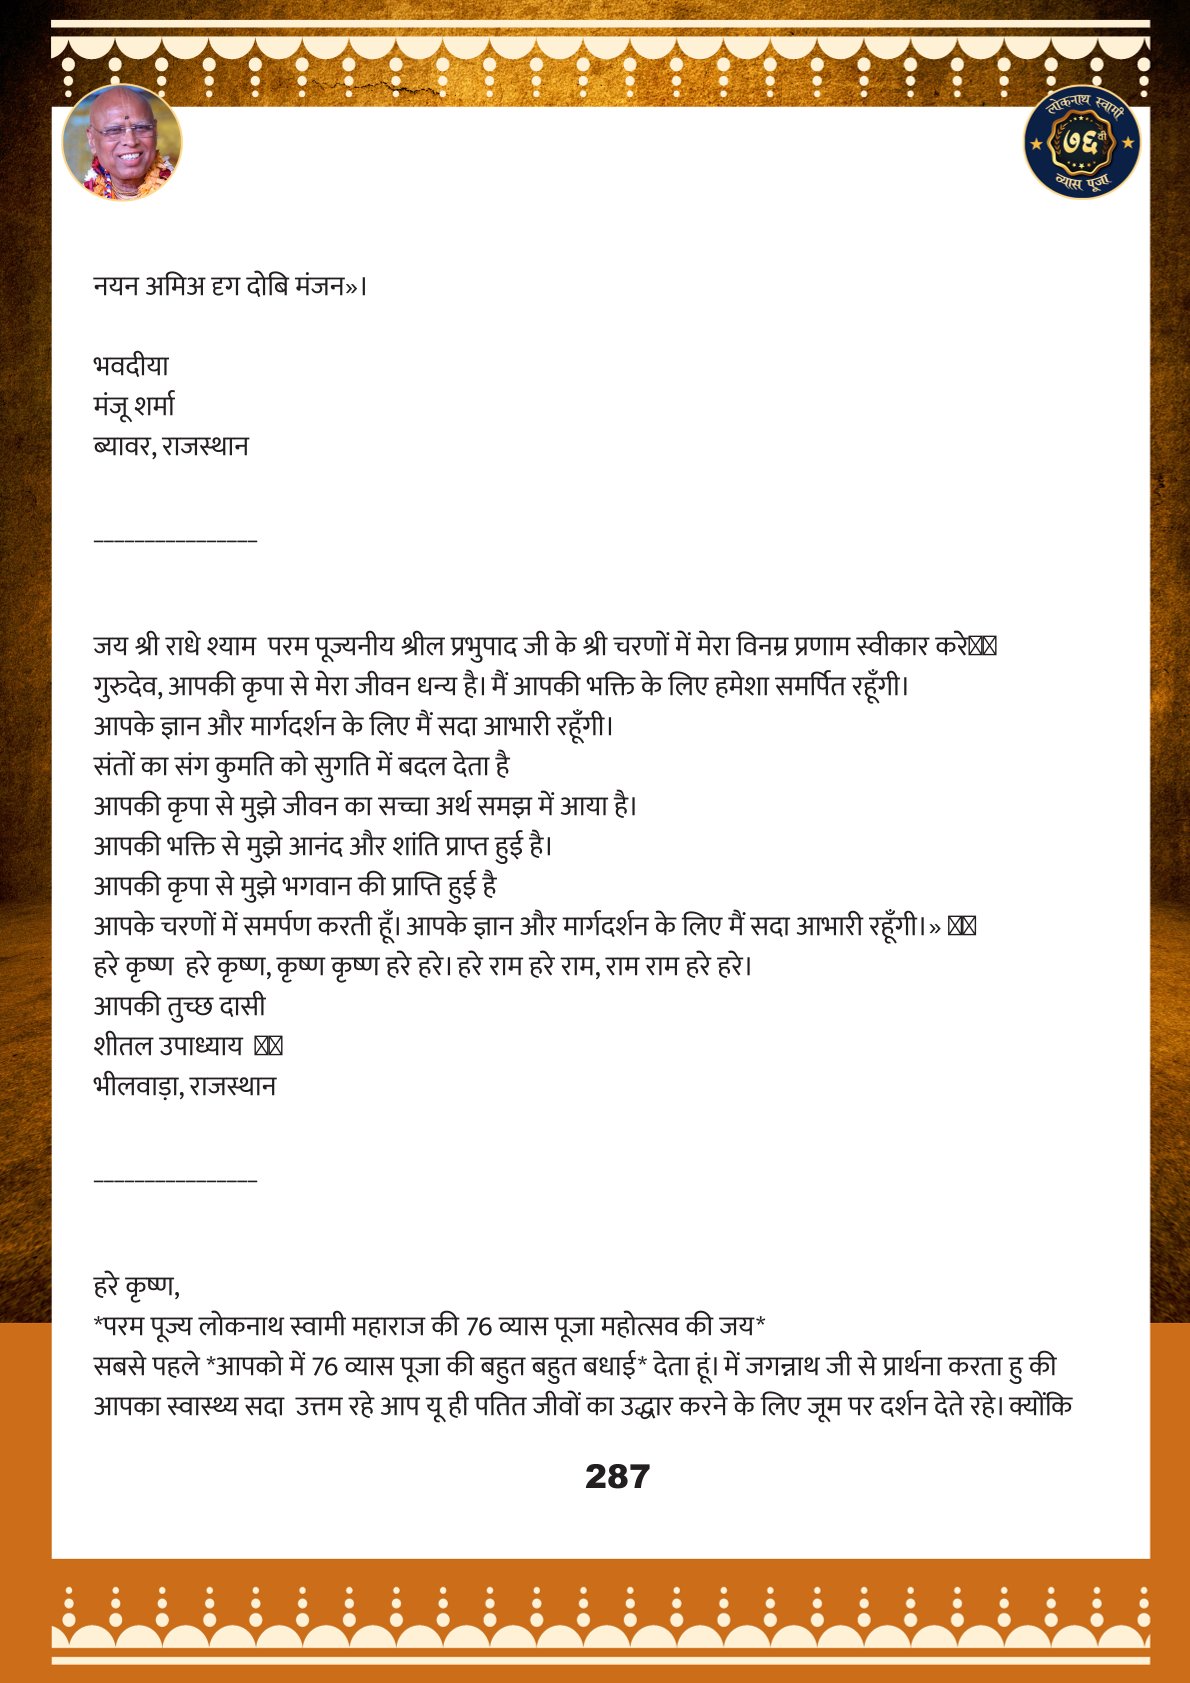 लोकनाथ स्वामी
७६वी
व्यास पूजा
नयन अमिअ दृग दोबि मंजन»।
भवदीया
मंजू शर्मा
ब्यावर, राजस्थान
________________
जय श्री राधे श्याम  परम पूज्यनीय श्रील प्रभुपाद जी के श्री चरणों में मेरा विनम्र प्रणाम स्वीकार करे
गुरुदेव, आपकी कृपा से मेरा जीवन धन्य है। मैं आपकी भक्ति के लिए हमेशा समर्पित रहूँगी।
आपके ज्ञान और मार्गदर्शन के लिए मैं सदा आभारी रहूँगी।
संतों का संग कुमति को सुगति में बदल देता है
आपकी कृपा से मुझे जीवन का सच्चा अर्थ समझ में आया है।
आपकी भक्ति से मुझे आनंद और शांति प्राप्त हुई है।
आपकी कृपा से मुझे भगवान की प्राप्ति हुई है
आपके चरणों में समर्पण करती हूँ। आपके ज्ञान और मार्गदर्शन के लिए मैं सदा आभारी रहूँगी।»
हरे कृष्ण  हरे कृष्ण, कृष्ण कृष्ण हरे हरे। हरे राम हरे राम, राम राम हरे हरे।
आपकी तुच्छ दासी
शीतल उपाध्याय
भीलवाड़ा, राजस्थान
________________
हरे कृष्ण,
*परम पूज्य लोकनाथ स्वामी महाराज की 76 व्यास पूजा महोत्सव की जय*
सबसे पहले *आपको में 76 व्यास पूजा की बहुत बहुत बधाई* देता हूं। में जगन्नाथ जी से प्रार्थना करता हु की
आपका स्वास्थ्य सदा  उत्तम रहे आप यू ही पतित जीवों का उद्धार करने के लिए जूम पर दर्शन देते रहे। क्योंकि
287